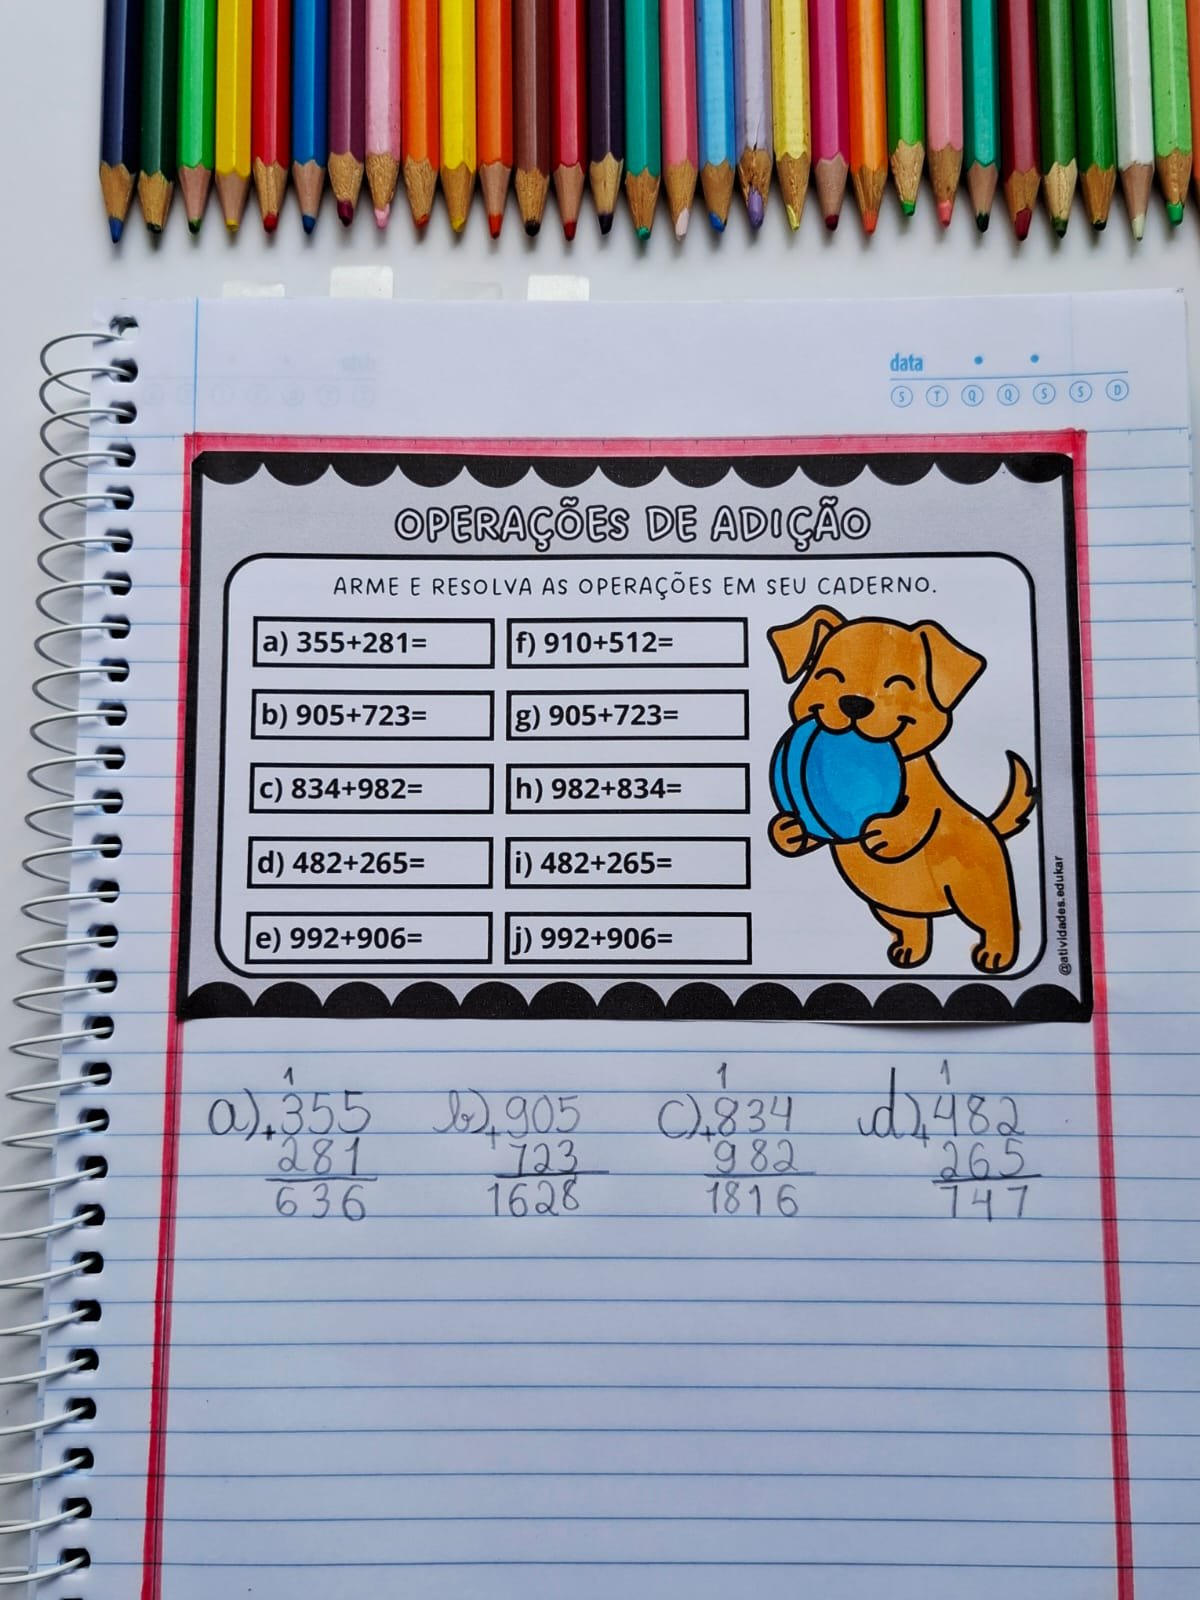 data
S T Q Q S S D
OPERAÇÕES DE ADIÇÃO
ARME E RESOLVA AS OPERAÇÕES EM SEU CADERNO.
a) 355+281=
f) 910+512=
b) 905+723=
g) 905+723=
c) 834+982=
h) 982+834=
d) 482+265=
i) 482+265=
e) 992+906=
j) 992+906=
@atividades.edukar
1
a) + 355
281
636
b) + 905
723
1628
1
c) + 834
982
1816
1
d) + 482
265
747